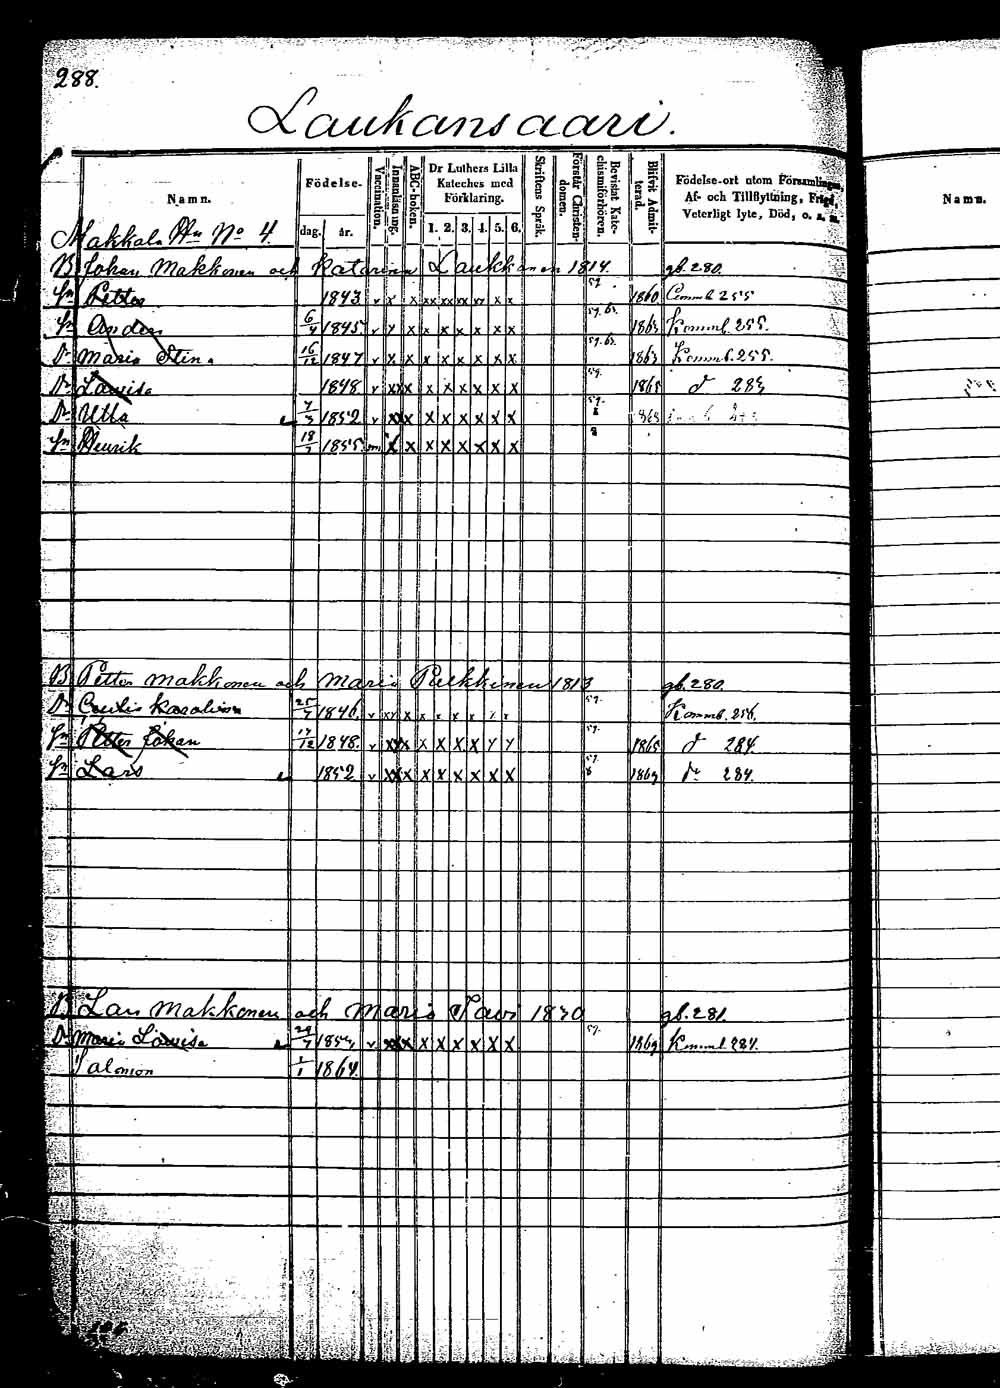 288.
Laukansaari.
Namn. Födelse- dag. år. Vaccination. Innanläsning. ABC-boken. Dr Luthers Lilla Kateches med Förklaring. 1. 2. 3. 4. 5. 6. Skriftens Språk. Förstår Christendomen. Bevistat Katechismiförhören. Blifvit Admitterad. Födelse-ort utom Församlingen, Af- och Tillflyttning, Frejd, Veterligt lyte, Död, o. s. v. Namn.
Makkala No 4.
B Johan Makkonen och Katarina Laukkanen 1814. gb. 280.
Sn Petter 1843 v x x xx xx xx x x 57 1860 255
Sn Anders 6/4 1845 v x x x x x x x x 59.63. 1863 Kommb. 255.
Dr Maria Stina 16/12 1847 v x x x x x x x x 59.63. 1863 Kommb. 255.
Dr Lovisa 1848 v xx x x x x x x x 59. 1865 d 283
Dr Ulla 1852 v xx x x x x x x x 59. 1869
Sn Henrik 18/7 1855 x x x x x x x x
B Petter Makkonen och Maria Pulkkinen 1813 gb. 280.
Dr Cecilia Karolina 25/7 1846 v xx x x x x x x x 59. Kommb. 256.
Sn Petter Johan 17/12 1848. v xx x x x x x y y 59. 1865 d 284.
Sn Lars 1852 v xx x x x x x x x 57. 8 1869 do 284.
B Lars Makkonen och Maria 1830 gb. 281.
Dr Maria Lovisa 29/7 v xx x x x x x x x 59. 1869 Kommb. 284.
Salomon 1/1 1864.